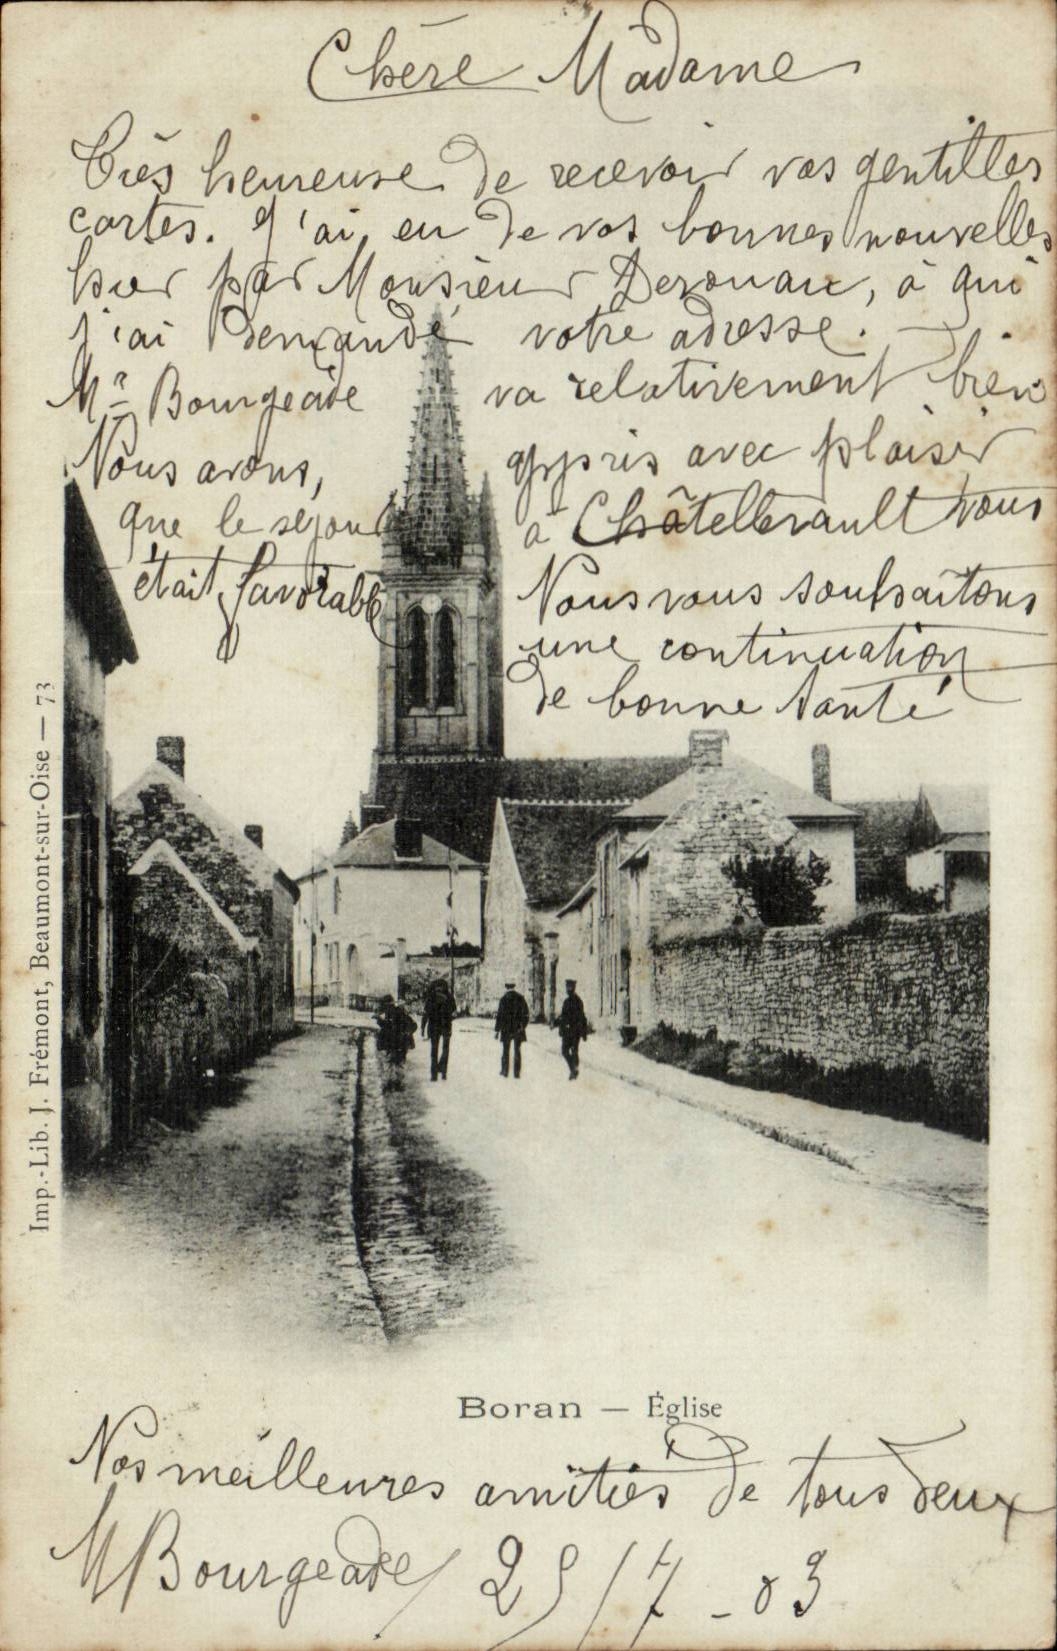 Chère Madame
Très heureuse de recevoir vos gentilles
cartes. J'ai eu de vos bonnes nouvelles
hier par Monsieur Derouaux, à qui
j'ai demandé votre adresse.
Mr Bourgeade va relativement bien
Nous avons, appris avec plaisir
que le séjour à Châtellerault vous
était favorable Nous vous souhaitons
une continuation
de bonne santé
Imp.-Lib. J. Frémont, Beaumont-sur-Oise — 73
Boran — Église
Nos meilleures amitiés de tous deux
M Bourgeade 25/7-03